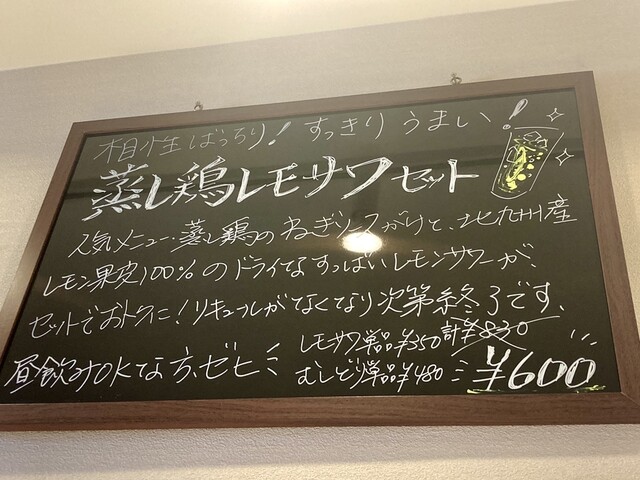 相性ばっちり！すっきりうまい！
蒸し鶏レモサワセット
人気メニュー・蒸し鶏のねぎソースがけと、北九州産
レモン果皮100%のドライなすっぱいレモンサワーが
セットでおトクに！リキュールがなくなり次第終了です、
昼飲みOKな方、ゼヒミ
レモサワ単品¥350 計¥830
むしどり単品¥480 ミ ¥600